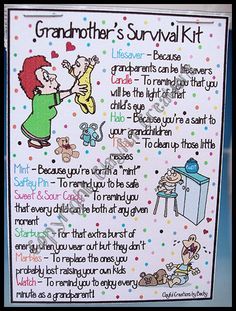 Grandmother's Survival Kit
Lifesaver - Because
grandparents can be lifesavers
Candle - To remind you that you
will be the light of that
child's eye
Halo - Because you're a saint to
your grandchildren
- To clean up those little
messes
Mint - Because you're worth a "mint"
Saftey Pin - To remind you to be safe
Sweet & Sour Candy - To remind you
that every child can be both at any given
moment
Starburst - For that extra burst of
energy when you wear out but they don't
Marbles - To replace the ones you
probably lost raising your own kids
Watch - To remind you to enjoy every
minute as a grandparent!